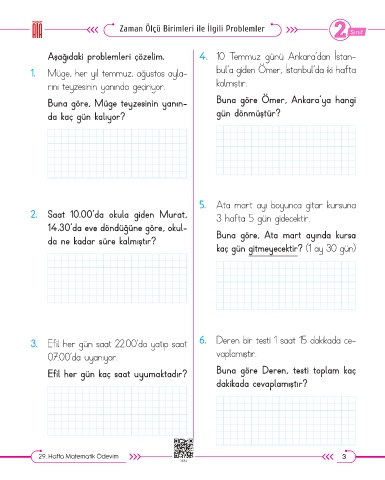 Zaman Ölçü Birimleri ile İlgili Problemler
2. Sınıf
Aşağıdaki problemleri çözelim.
1. Müge, her yıl temmuz, ağustos ayla-
rını teyzesinin yanında geçiriyor.
Buna göre, Müge teyzesinin yanın-
da kaç gün kalıyor?
2. Saat 10.00'da okula giden Murat,
14.30'da eve döndüğüne göre, okul-
da ne kadar süre kalmıştır?
3. Efil her gün saat 22.00'da yatıp saat
07.00'da uyanıyor.
Efil her gün kaç saat uyumaktadır?
4. 10 Temmuz günü Ankara'dan İstan-
bul'a giden Ömer, İstanbul'da iki hafta
kalmıştır.
Buna göre Ömer, Ankara'ya hangi
gün dönmüştür?
5. Ata mart ayı boyunca gitar kursuna
3 hafta 5 gün gidecektir.
Buna göre, Ata mart ayında kursa
kaç gün gitmeyecektir? (1 ay 30 gün)
6. Deren bir testi 1 saat 15 dakikada ce-
vaplamıştır.
Buna göre Deren, testi toplam kaç
dakikada cevaplamıştır?
29. Hafta Matematik Ödevim
3